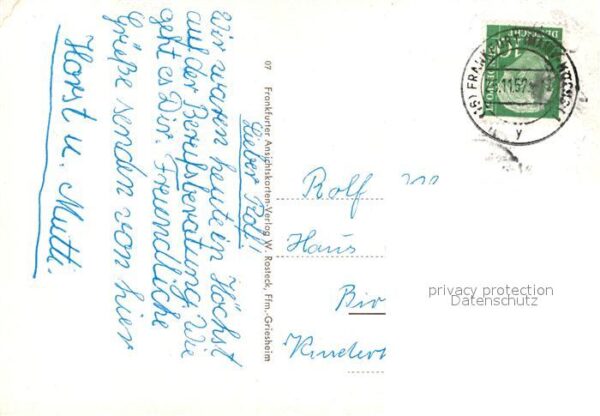 Lieber Rolf!
Wir waren heute in Höchst
auf der Berufsberatung. Wie
geht es Dir. Freundliche
Grüße senden von hier
Horst u. Mutti.
07 Frankfurter Ansichtskarten-Verlag W. Rosteck, Ffm.-Griesheim
Rolf
Haus
privacy protection
Datenschutz